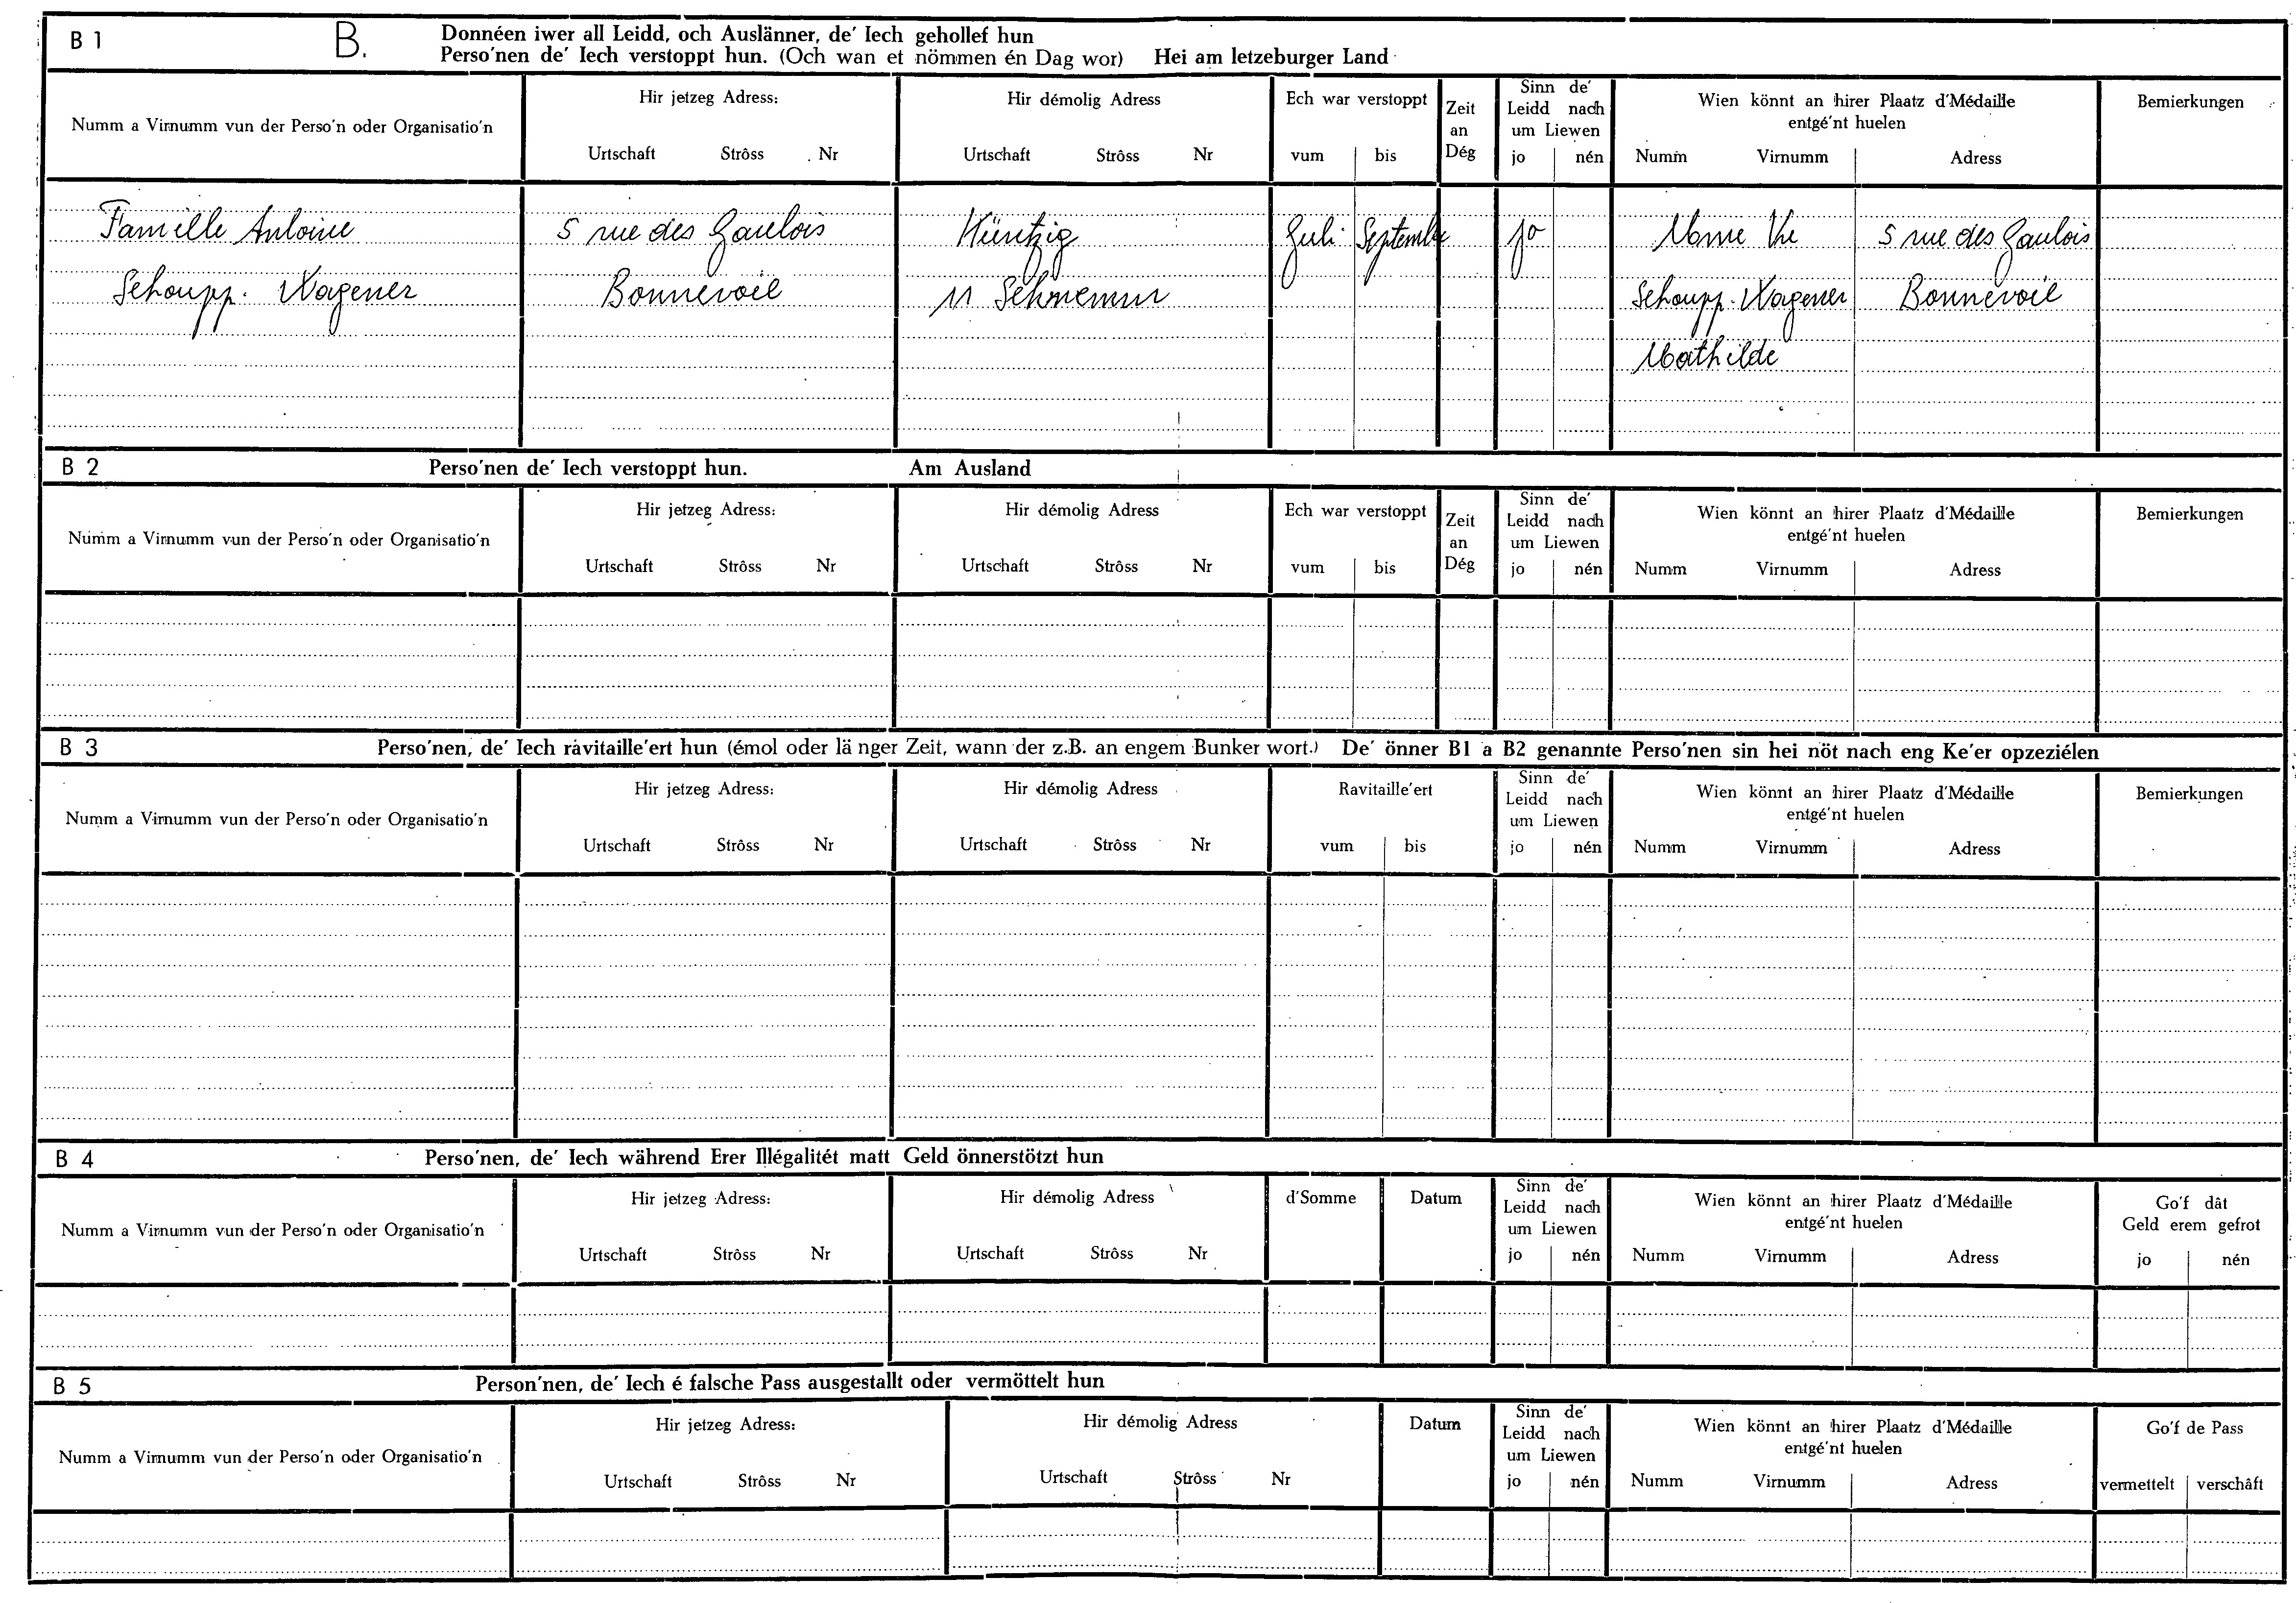 B 1 B. Donnéen iwer all Leidd, och Auslänner, de' Iech gehollef hun
Perso'nen de' Iech verstoppt hun. (Och wan et nömmen én Dag wor) Hei am letzeburger Land
Numm a Virnumm vun der Perso'n oder Organisatio'n
Hir jetzeg Adress:
Urtschaft Strôss Nr
Hir démolig Adress
Urtschaft Strôss Nr
Ech war verstoppt
vum bis
Zeit
an
Dég
Sinn de'
Leidd nach
um Liewen
jo nén
Wien könnt an hirer Plaatz d'Médaille
entgé'nt huelen
Numm Virnumm Adress
Bemierkungen
Famille Antoine 5 rue des Gaulois Küntzig Juli Septembre jo Mme Ve 5 rue des Gaulois
Schoupp. Wagener Bonnevoie 11 Schoupp. Wagener Bonnevoie
Mathilde
B 2 Perso'nen de' Iech verstoppt hun. Am Ausland
Numm a Virnumm vun der Perso'n oder Organisatio'n
Hir jetzeg Adress:
Urtschaft Strôss Nr
Hir démolig Adress
Urtschaft Strôss Nr
Ech war verstoppt
vum bis
Zeit
an
Dég
Sinn de'
Leidd nach
um Liewen
jo nén
Wien könnt an hirer Plaatz d'Médaille
entgé'nt huelen
Numm Virnumm Adress
Bemierkungen
B 3 Perso'nen, de' Iech ravitaille'ert hun (émol oder länger Zeit, wann der z.B. an engem Bunker wort.) De' önner B1 a B2 genannte Perso'nen sin hei nöt nach eng Ke'er opzeziélen
Numm a Virnumm vun der Perso'n oder Organisatio'n
Hir jetzeg Adress:
Urtschaft Strôss Nr
Hir démolig Adress
Urtschaft Strôss Nr
Ravitaille'ert
vum bis
Sinn de'
Leidd nach
um Liewen
jo nén
Wien könnt an hirer Plaatz d'Médaille
entgé'nt huelen
Numm Virnumm Adress
Bemierkungen
B 4 Perso'nen, de' Iech während Erer Illégalitét matt Geld önnerstötzt hun
Numm a Virnumm vun der Perso'n oder Organisatio'n
Hir jetzeg Adress:
Urtschaft Strôss Nr
Hir démolig Adress
Urtschaft Strôss Nr
d'Somme
Datum
Sinn de'
Leidd nach
um Liewen
jo nén
Wien könnt an hirer Plaatz d'Médaille
entgé'nt huelen
Numm Virnumm Adress
Go'f dât
Geld erem gefrot
jo nén
B 5 Person'nen, de' Iech é falsche Pass ausgestallt oder vermöttelt hun
Numm a Virnumm vun der Perso'n oder Organisatio'n
Hir jetzeg Adress:
Urtschaft Strôss Nr
Hir démolig Adress
Urtschaft Strôss Nr
Datum
Sinn de'
Leidd nach
um Liewen
jo nén
Wien könnt an hirer Plaatz d'Médaille
entgé'nt huelen
Numm Virnumm Adress
Go'f de Pass
vermettelt verschâft